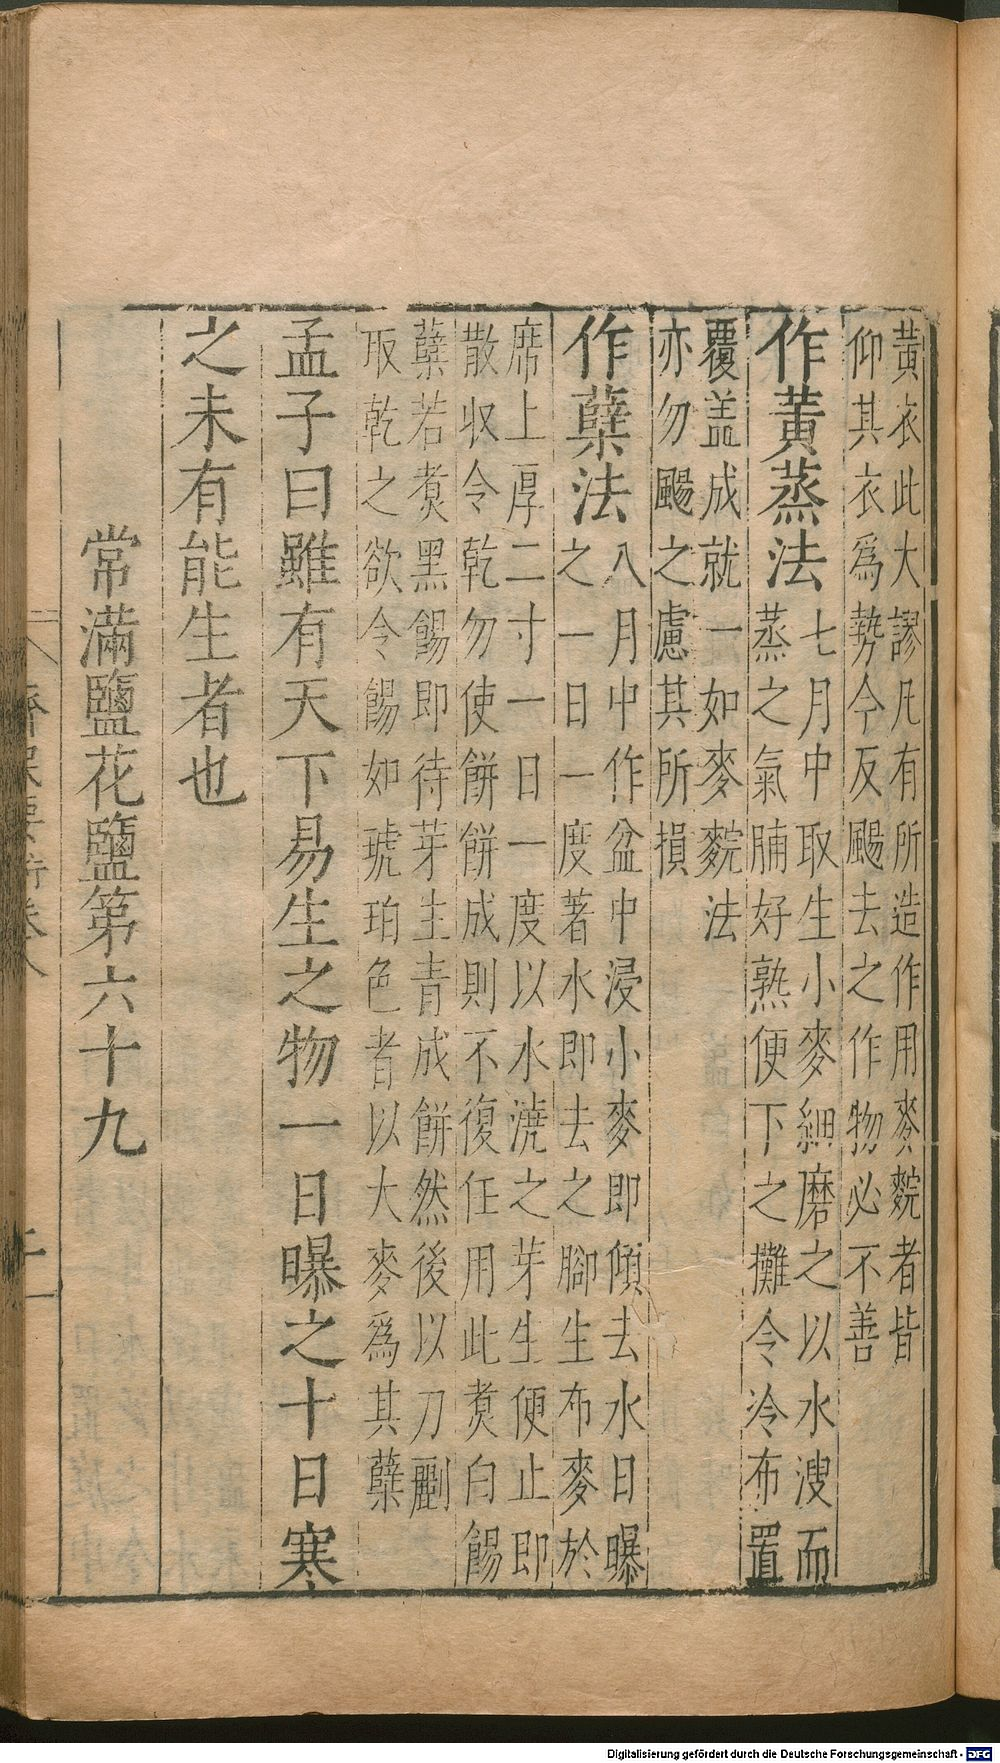 黃衣此大謬凡有所造作用麥䴷者皆
仰其衣爲勢今反颺去之作物必不善
作黃蒸法七月中取生小麥細磨之以水溲而
蒸之氣腩好熟便下之攤令冷布置
覆盖成就一如麥䴷法
亦勿颺之慮其所損
作櫱法八月中作盆中浸小麥即傾去水日曝
之一日一度著水即去之腳生布麥於
席上厚二寸一日一度以水澆之芽生便止即
散收令乾勿使餅餅成則不復任用此煑白餳
櫱若煑黑餳即待芽生青成餅然後以刀劘
取乾之欲令餳如琥珀色者以大麥爲其櫱
孟子曰雖有天下易生之物一日曝之十日寒
之未有能生者也
常滿鹽花鹽第六十九
齊民要術卷八
Digitalisierung gefördert durch die Deutsche Forschungsgemeinschaft - DFG